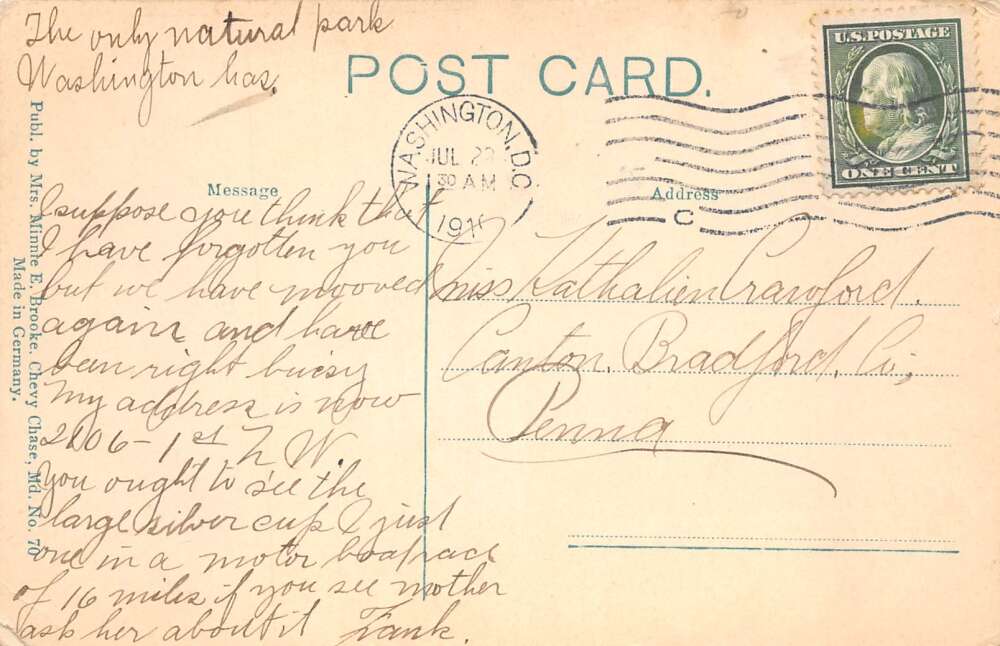 The only natural park
Washington has.
POST CARD.
U.S. POSTAGE
ONE CENT
WASHINGTON, D.C.
JUL
30 AM
191
C
Message
Address
I suppose you think that
I have forgotten you
but we have mooved
again and have
been right buisy
My address is now
2106 - 1st N W.
You ought to see the
large silver cup I just
one in a motor boat race
of 16 miles if you see mother
ask her about it Frank.
Miss Kathalien Crawford.
Canton, Bradford, Co,
Penna
Publ. by Mrs. Minnie E. Brooke, Chevy Chase, Md. No. 70
Made in Germany.